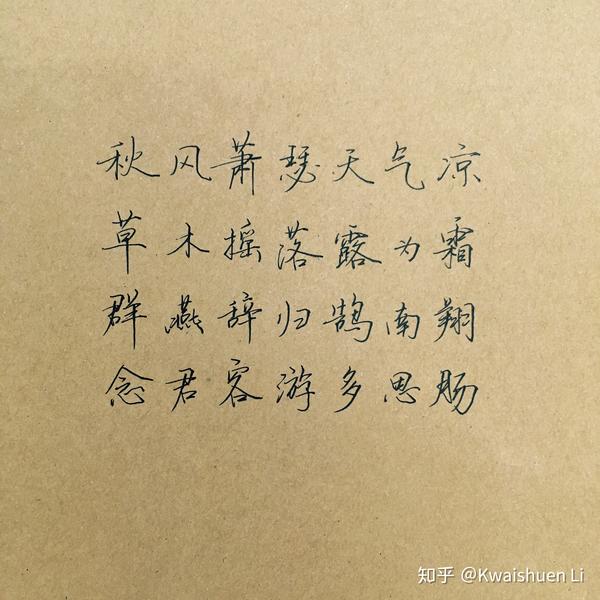 秋风萧瑟天气凉
草木摇落露为霜
群燕辞归鹄南翔
念君客游多思肠
知乎 @Kwaishuen Li